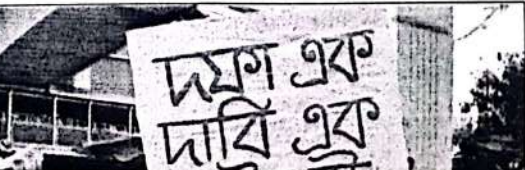 দফা এক
দাবি এক